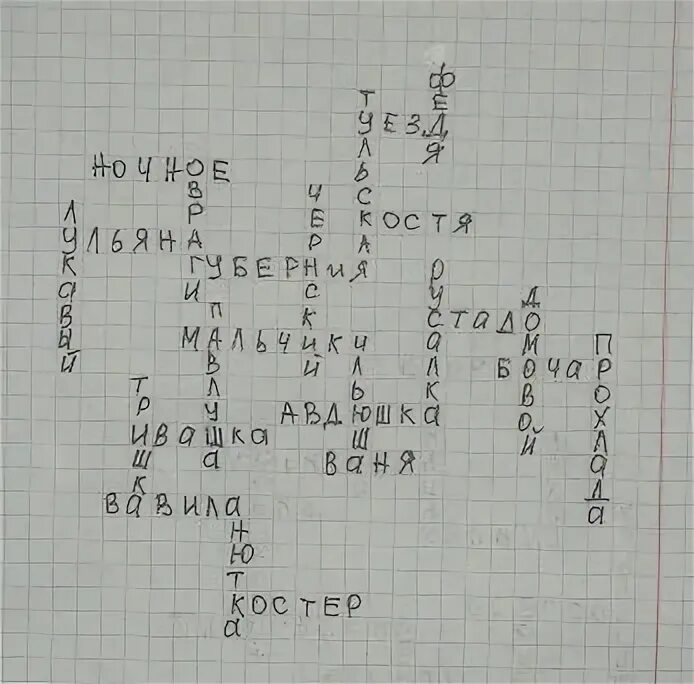 ФЕДЯ
ТУЛЬСКАЯ
УЕЗД
НОЧНОЕ
ОВРАГИ
ЧЕРНСКИЙ
ЛУКАВЫЙ
КОСТЯ
УЛЬЯНА
ГУБЕРНИЯ
РУСАЛКА
ПАВЛУША
СТАДО
ДОМОВОЙ
МАЛЬЧИКИ
ИЛЬЮША
ПРОХЛАДА
БОЧАР
ТРИШКА
АВДЮШКА
ИВАШКА
ВАНЯ
ВАВИЛА
АНЮТКА
КОСТЕР